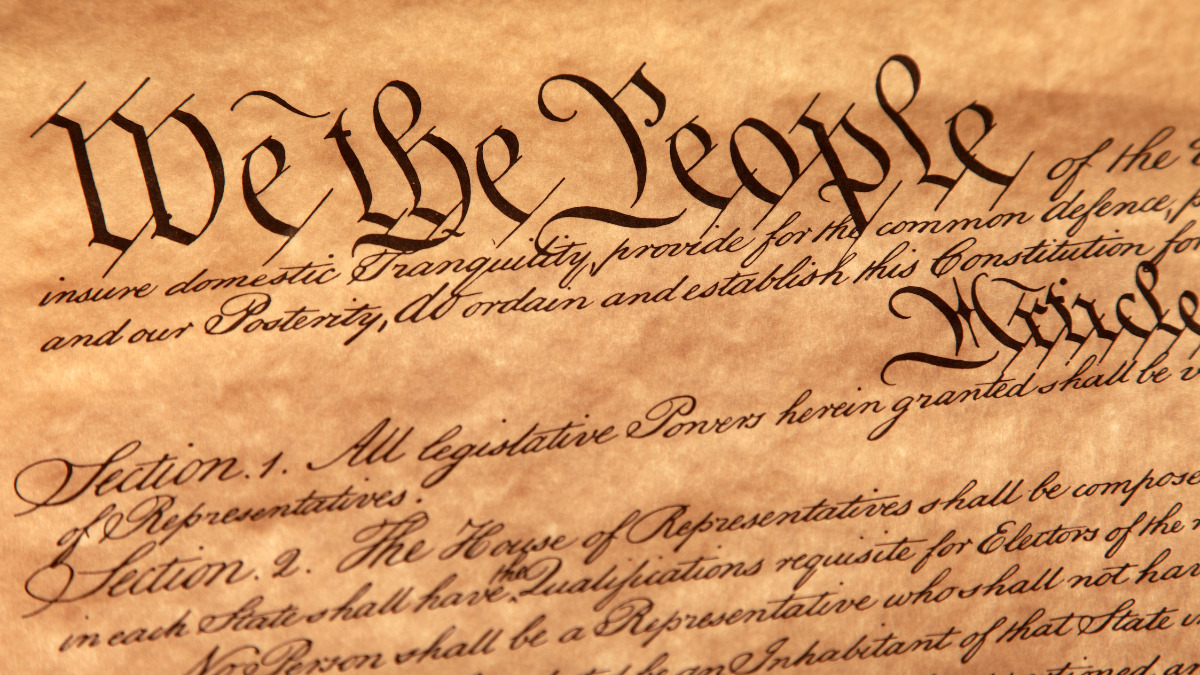 We the People of the
insure domestic Tranquility, provide for the common defence,
and our Posterity, do ordain and establish this Constitution for
Article
Section. 1. All legislative Powers herein granted shall be
of Representatives.
Section. 2. The House of Representatives shall be compose
the
in each State shall have Qualifications requisite for Electors of the
No Person shall be a Representative who shall not hav
be an Inhabitant of that State in